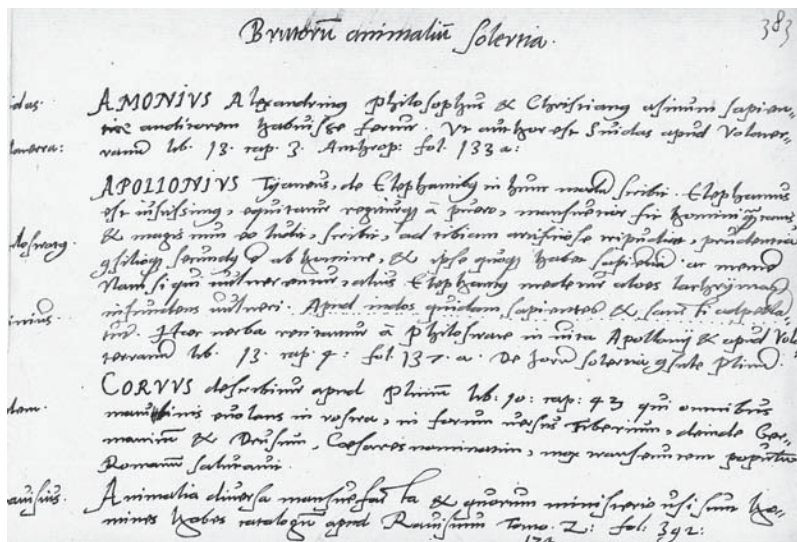 Brutorū animaliū solertia.
383
AMONIVS Alexandrinus philosophus & Christianus asinum sapien-
tiae auditorem habuisse fertur. Vt author est Suidas apud Volater-
ranū lib. 13. cap. 3. Anthrop: fol. 133 a:
APOLLONIVS Tyaneus, de Elephantibus in hunc modū scribit. Elephantus
est, equitatur regiturq; à puero, mansuetior fit homini
& magis, scribit, ad tibiam artificiose tripudiat, prudentia
secundus ē ab homine, & ipse quoq; habet sapientiā ac
Nam si qui vulnerentur, alius Elephantus medetur aloes lachrymas
infundens vulneri. Apud indos quidam sapientes & sancti
tur. Haec verba recitantur à Philostrate in vita Apollonij & apud Vola
terranū lib. 13. cap. 4: fol. 137. a. De horū solertia 9sule Pliniū.
CORVVS describitur apud Pliniū lib: 10: cap: 43 qui omnibus
matutinis evolans in rostra, in forum versus Tiberium, deinde Ger-
manicū & Drusum, Caesares nominatim, mox transeuntem populū
Romanū salutavit.
Animalia diversa mansuefacta & quorum ministerio usi sunt ho-
mines habes catalogū apud Ravisium Tomo. 2: fol: 392: